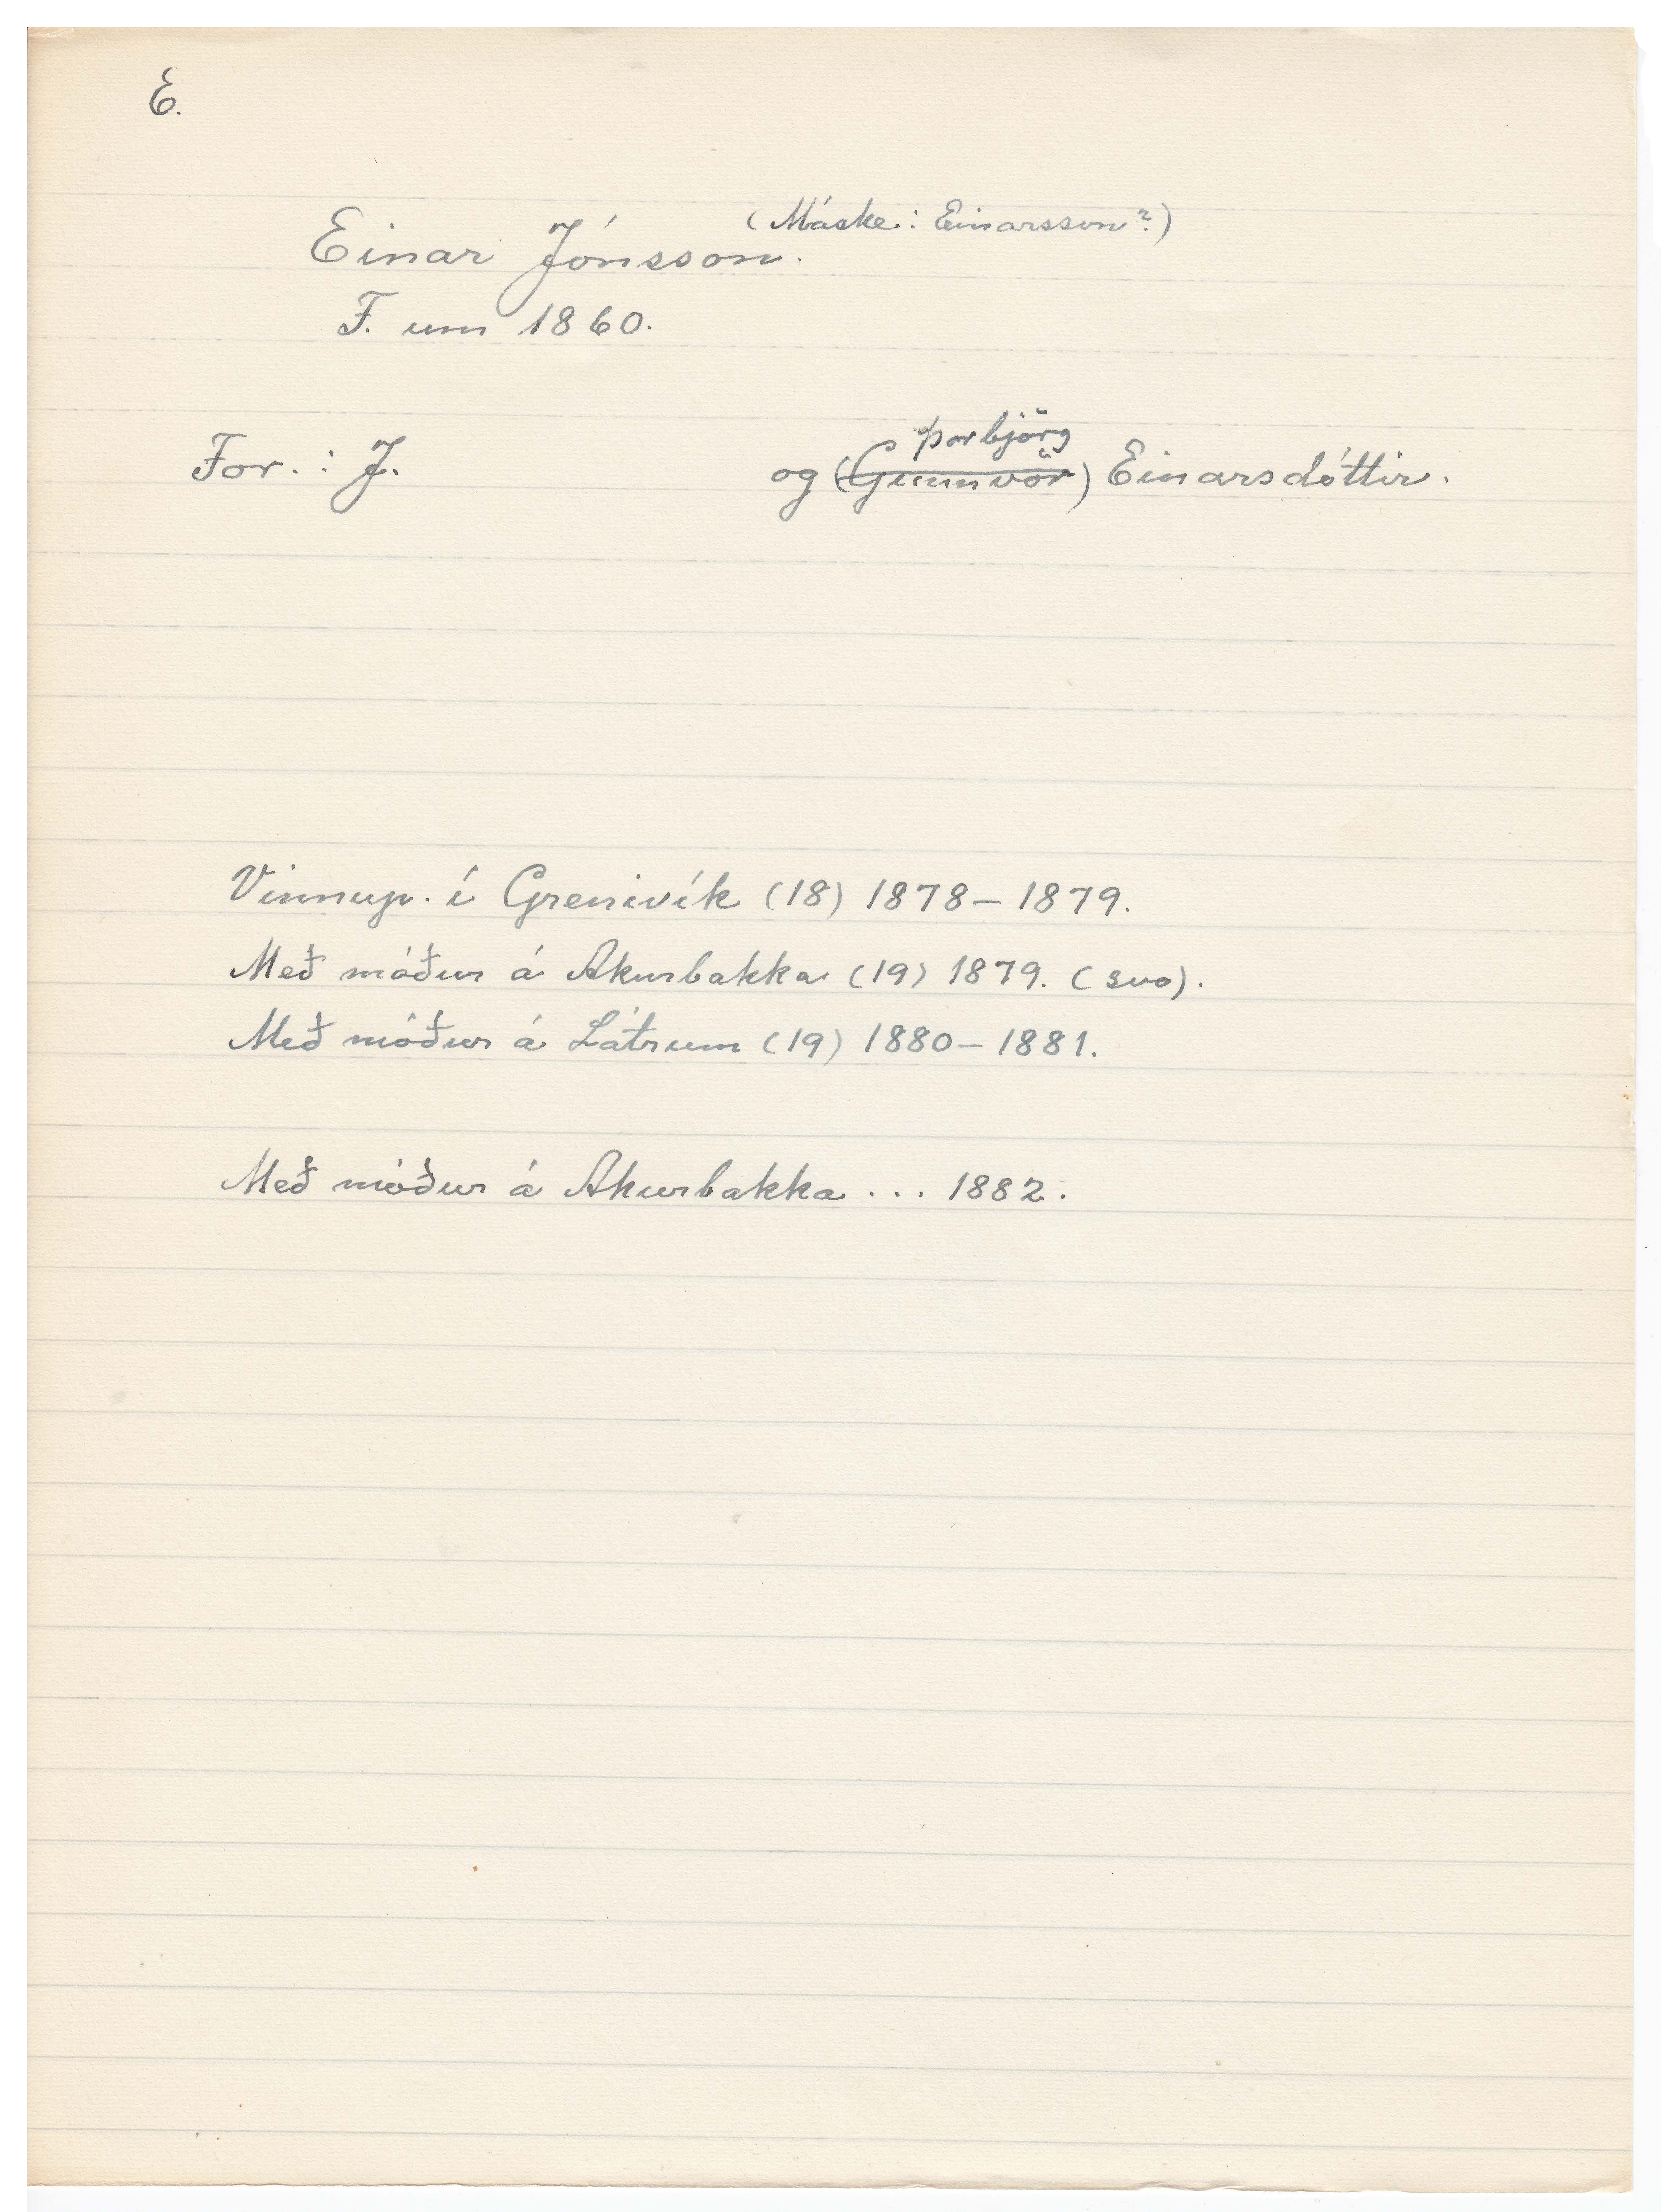 E.
(Máske: Einarsson?)
Einar Jónsson.
F. um 1860.
Þorbjörg
For.: J. og (Gunnvör) Einarsdóttir.
Vinnup. í Grenivík (18) 1878–1879.
Með móður á Akurbakka (19) 1879. (svo).
Með móður á Látrum (19) 1880–1881.
Með móður á Akurbakka ... 1882.